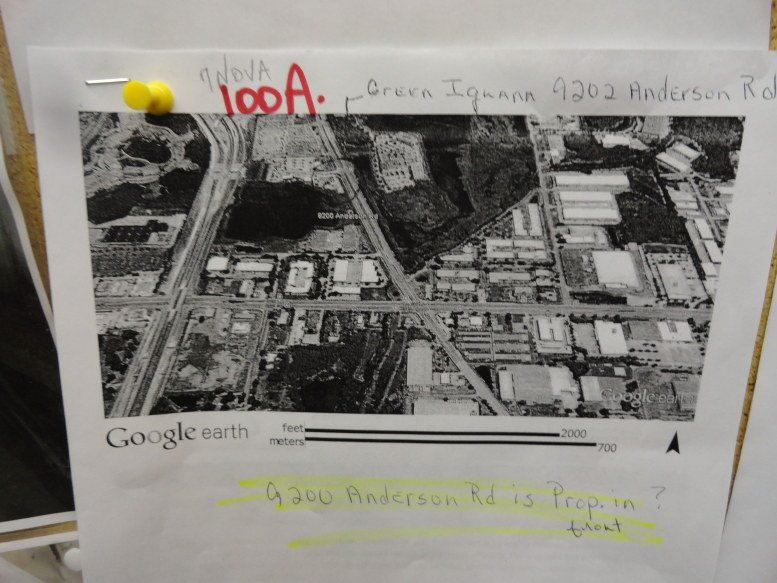 NOVA
100A. Green Iguana 9202 Anderson Rd
9200 Anderson Rd
Google earth
Google earth
feet 2000
meters 700
9200 Anderson Rd is Prop. in ?
front